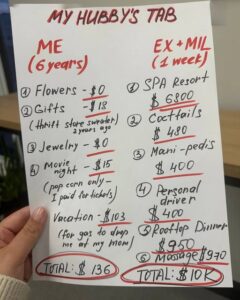 MY HUBBY'S TAB
ME
(6 years)
① Flowers - $0
② Gifts - $18
(thrift store sweater)
2 years ago
③ Jewelry - $0
④ Movie night - $15
(popcorn only -
I paid for tickets)
Vacation - $103
(for gas to drop
me at my mom)
TOTAL: $136
EX + MIL
(1 week)
① SPA Resort
$ 6800
② Coctails
$ 480
③ Mani-pedis
$ 400
④ Personal
driver
$ 400
⑤ Rooftop Dinner
$950
⑥ Massage $970
TOTAL: $10K